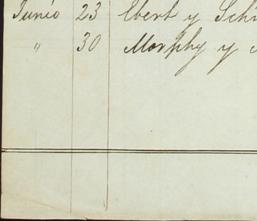 Junio 23 Ebert y Sch
" 30 Morphy y